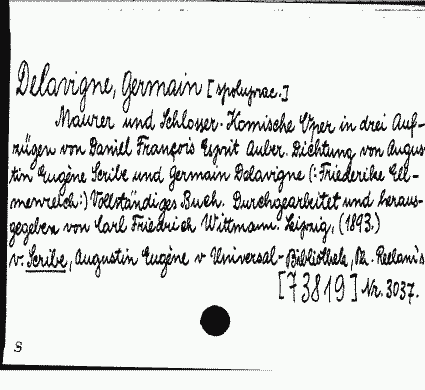 Delavigne, Germain [spoluprac.]
Maurer und Schlosser. Komische Oper in drei Auf-
zügen von Daniel François Esprit Auber. Dichtung von Augus-
tin Eugène Scribe und Germain Delavigne (: Friederike Ell-
menreich:) Vollständiges Buch. Durchgearbeitet und heraus-
gegeben von Carl Friedrich Wittmann. Leipzig, (1893.)
v. Scribe, Augustin Eugène v Universal-Bibliothek, Ph. Reclam's
[73819] Nr. 3037.
S